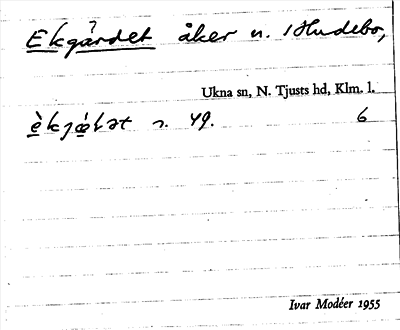 Ekgärdet åker n. 1 Hudebo,
Ukna sn, N. Tjusts hd, Klm. l.
n. 49. 6
Ivar Modéer 1955